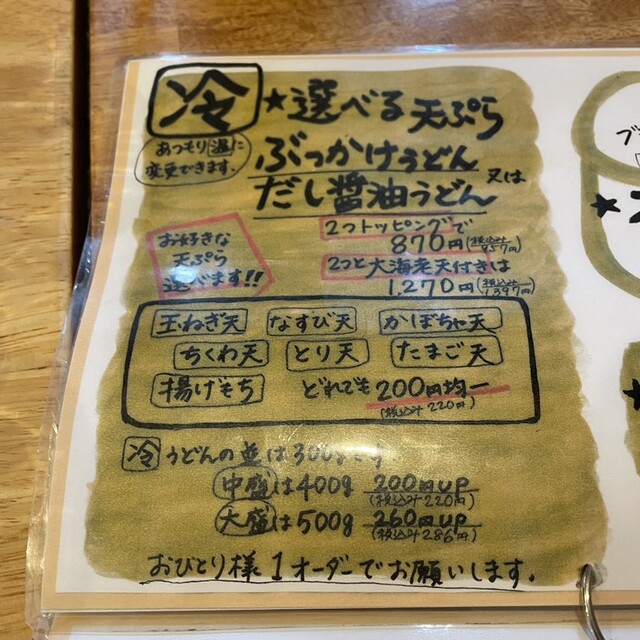 冷 ★選べる天ぷら
あつもり温に
変更できます。
ぶっかけうどん
だし醤油うどん 又は
お好きな
天ぷら
選べます!!
2つトッピングで
870円(税込み957円)
2つと大海老天付きは
1,270円(税込み1,397円)
玉ねぎ天 なすび天 かぼちゃ天
ちくわ天 とり天 たまご天
揚げもち どれでも200円均一
(税込み220円)
冷うどんの並は300gです
中盛は400g 200円UP
(税込み220円)
大盛は500g 260円UP
(税込み286円)
おひとり様1オーダーでお願いします。
★